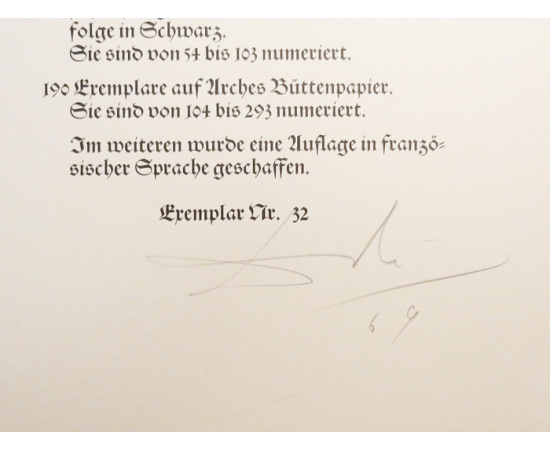 folge in Schwarz.
Sie sind von 54 bis 103 numeriert.
190 Exemplare auf Arches Büttenpapier.
Sie sind von 104 bis 293 numeriert.
Im weiteren wurde eine Auflage in franzö=
sischer Sprache geschaffen.
Exemplar Nr. 32
69